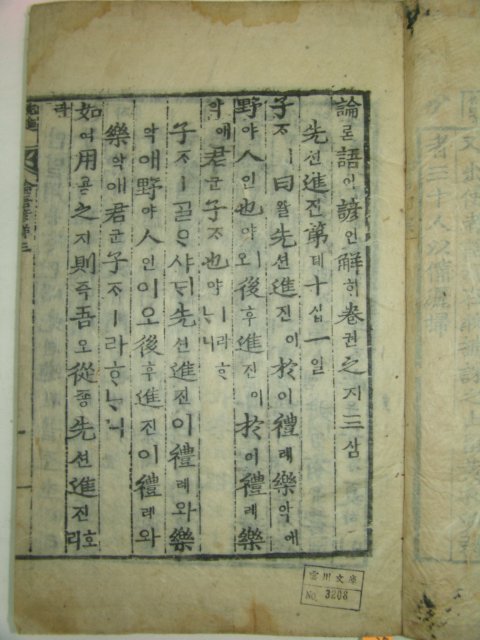 論론語어諺언解ᄒᆡ卷권之지三삼
先션進진第뎨十십一일
子ᄌᆞㅣ曰왈先션進진이於어禮례樂악애
野야人인也야ㅣ오後후進진이於어禮례樂
악애君군子ᄌᆞ也야ㅣ라ᄒᆞᄂᆞ니
子ᄌᆞㅣᄀᆞᆯᄋᆞ샤ᄃᆡ先션進진이禮례와樂
악애野야人인이오後후進진이禮례와
樂악애君군子ᄌᆞㅣ라ᄒᆞᄂᆞ니
如여用용之지則즉吾오從죵先션進진호리
라
雲川文庫
No. 3208